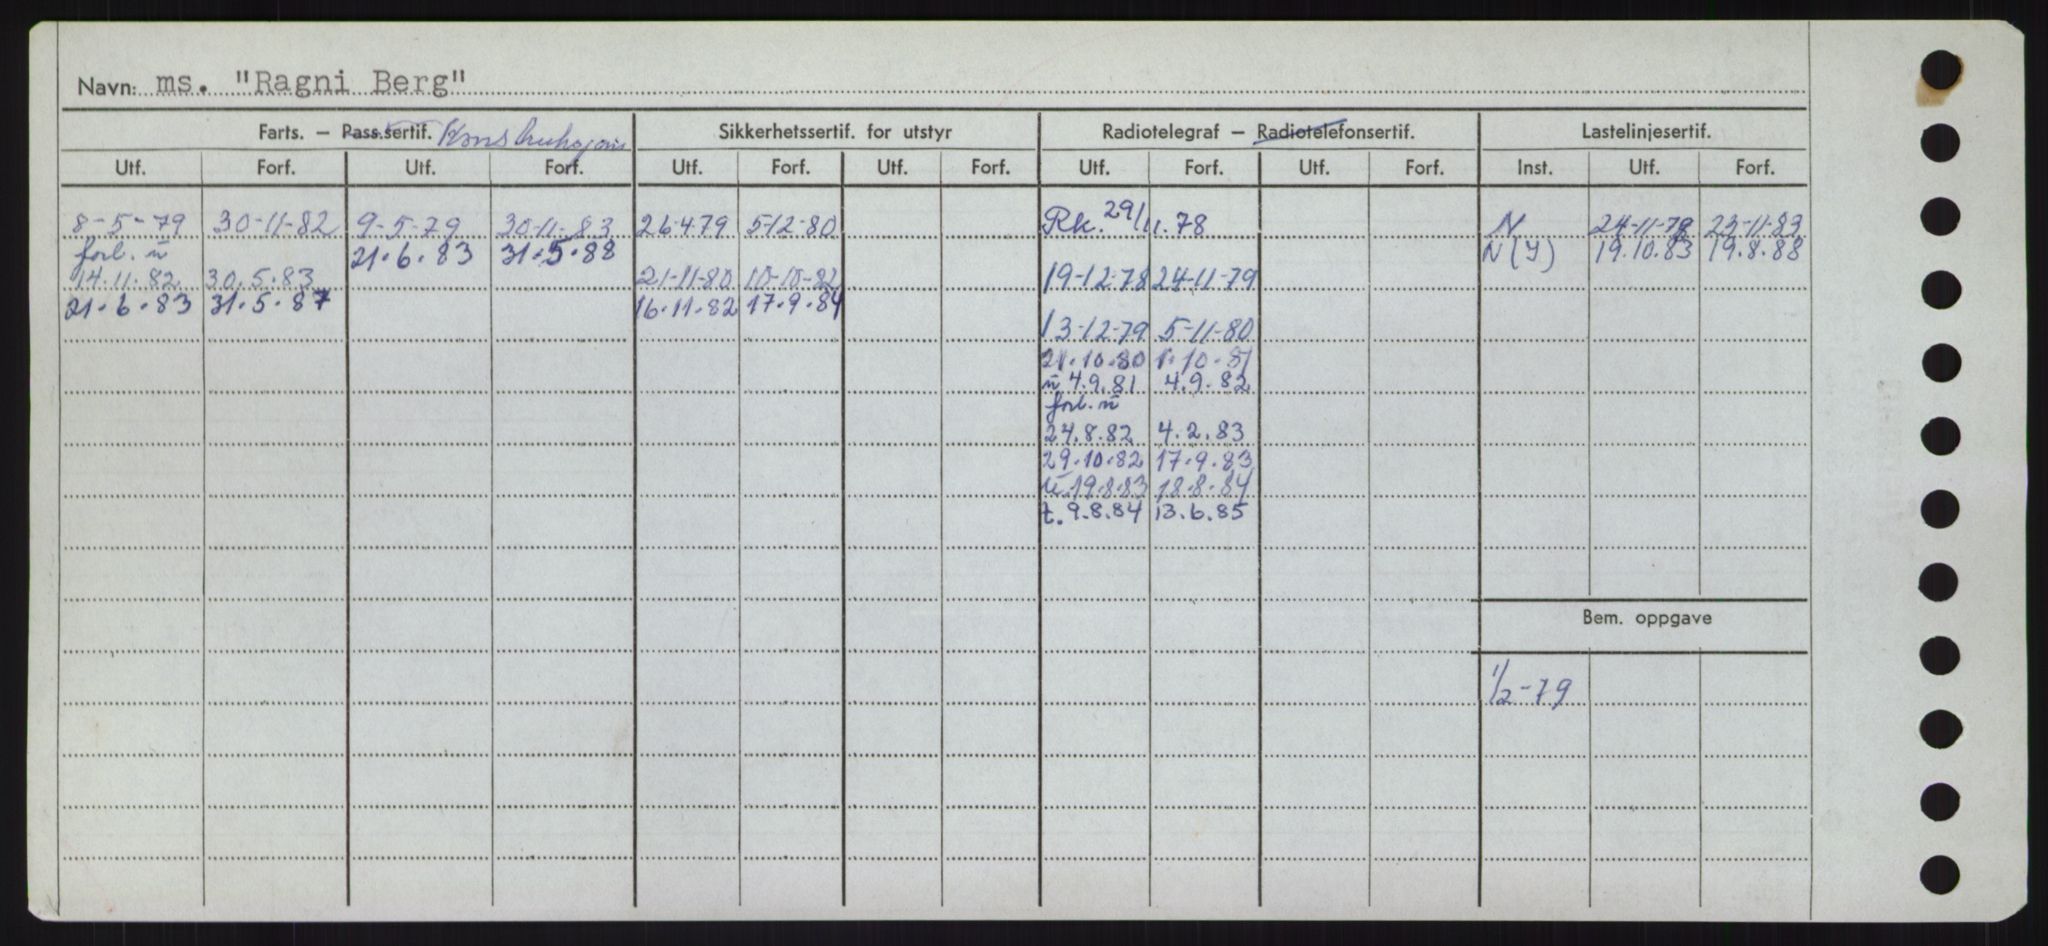 Navn: ms. "Ragni Berg"
Farts. – Pass.sertif. Konstruksjons Sikkerhetssertif. for utstyr Radiotelegraf – Radiotelefonsertif. Lastelinjesertif.
Utf. Forf. Utf. Forf. Utf. Forf. Utf. Forf. Utf. Forf. Utf. Forf. Inst. Utf. Forf.
8-5-79 30-11-82 9-5-79 30-11-83 26-4-79 5-12-80 Rk. 29/11.78 N 24-11-78 23-11-83
forl. u 21.6.83 31.5.88 N(I) 19.10.83 19.8.88
14.11.82 30.5.83 21-11-80 10-10-82 19-12-78 24-11-79
21.6.83 31.5.87 16.11.82 17.9.84
13-12-79 5-11-80
21.10.80 1.10.81
u 4.9.81 4.9.82
forl. u
24.8.82 4.2.83
29.10.82 17.9.83
u 19.8.83 18.8.84
t. 9.8.84 13.6.85
Bem. oppgave
1/2-79